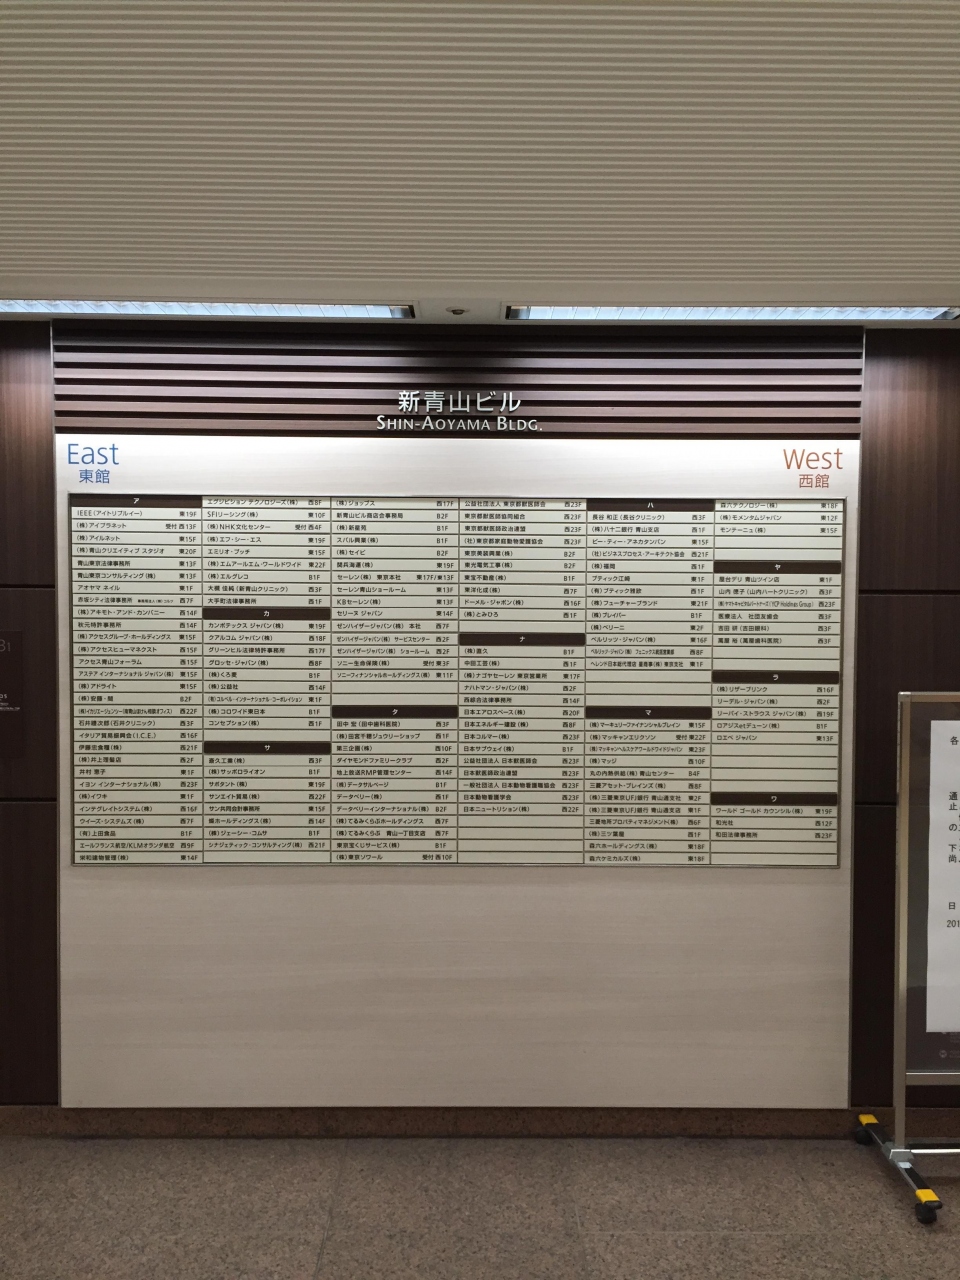 新青山ビル
SHIN-AOYAMA BLDG.
East
東館
West
西館
ア
IEEE(アイトリプルイー) 東19F
(株)アイプラネット 受付 西13F
(株)アイルネット 西15F
(株)青山クリエイティブ スタジオ 東20F
青山東京法律事務所 東13F
青山東京コンサルティング(株) 東13F
アオヤマ ネイル 東1F
赤坂シティ法律事務所 西7F
(株)アキモト・アンド・カンパニー 西14F
秋元特許事務所 西14F
(株)アクセスグループ・ホールディングス 東15F
(株)アクセスヒューマネクスト 西15F
アクセス青山フォーラム 西15F
アステア インターナショナル ジャパン(株) 東15F
(株)アドライト 東15F
(株)安藤・間 B2F
西22F
石井健次郎(石井クリニック) 西3F
イタリア貿易振興会(I.C.E.) 西16F
伊藤忠食糧(株) 西21F
(株)井上理髪店 西2F
井村 恵子 東1F
イヨン インターナショナル(株) 西23F
(株)イワキ 東1F
インテグレイトシステム(株) 西16F
ウイーズ・システムズ(株) 西7F
(有)上田食品 B1F
エールフランス航空/KLMオランダ航空 西9F
栄和建物管理(株) 東14F
エグジビション テクノロジーズ(株) 西8F
SFIリーシング(株) 東10F
(株)NHK文化センター 受付 西4F
(株)エフ・シー・エス 東19F
エミリオ・プッチ 東15F
(株)エムアールエム・ワールドワイド 東22F
(株)エルグレコ B1F
大槻 佳純(新青山クリニック) 西3F
大手町法律事務所 西1F
カ
カンボテックス ジャパン(株) 東19F
クアルコム ジャパン(株) 西18F
グリーンヒル法律特許事務所 西17F
グロッセ・ジャパン(株) 西8F
(株)くろ麦 B1F
(株)公益社 西14F
(有)コルベル・インターナショナル・コーポレイション 東1F
(株)コロワイド東日本 B1F
コンセプション(株) 西1F
サ
斎久工業(株) 西3F
(株)サッポロライオン B1F
サポタント(株) 東19F
サンエイト貿易(株) 西22F
サン共同会計事務所 東15F
燦ホールディングス(株) 西14F
(株)ジェーシー・コムサ B1F
シナジェティック・コンサルティング(株) 西21F
(株)ジョップス 西17F
新青山ビル商店会事務局 B2F
(株)新星苑 B1F
スバル興業(株) B1F
(株)セイビ B2F
関兵海運(株) 東19F
セーレン(株) 東京本社 東17F/東13F
セーレン青山ショールーム 東13F
KBセーレン(株) 東13F
セリーヌ ジャパン 東14F
ゼンハイザージャパン(株) 本社 西7F
ゼンハイザージャパン(株) サービスセンター 西2F
ゼンハイザージャパン(株) ショールーム 西2F
ソニー生命保険(株) 受付 東3F
ソニーフィナンシャルホールディングス(株) 東11F
タ
田中 宝(田中歯科医院) 西3F
(株)田宮千穂ジュウコリーショップ 西1F
第三企画(株) 西10F
ダイヤモンドファミリークラブ 西2F
地上放送RMP管理センター 西14F
(株)データサルページ B1F
データベリー(株) 西1F
データベリーインターナショナル(株) B2F
(株)てるみくらぶホールディングス 西7F
(株)てるみくらぶ 青山一丁目支店 西7F
東京宝くじサービス(株) B1F
(株)東京ソワール 受付 西10F
公益社団法人 東京都獣医師会 西23F
東京都獣医師協同組合 西23F
東京都獣医師政治連盟 西23F
(社)東京都家庭動物愛護協会 西23F
東京美装興業(株) B2F
東光電気工事(株) B2F
東宝不動産(株) B1F
東洋化成(株) 西7F
ドーメル・ジャポン(株) 西16F
(株)とみひろ 西1F
ナ
(株)直久 B1F
中田工芸(株) 西1F
(株)ナゴヤセーレン 東京営業所 東17F
ナハトマン・ジャパン(株) 西2F
西綜合法律事務所 西14F
日本エアロスペース(株) 西20F
日本エネルギー建設(株) 西8F
日本コルマー(株) 西23F
日本サブウェイ(株) B1F
公益社団法人 日本獣医師会 西23F
日本獣医師政治連盟 西23F
一般社団法人 日本動物看護職協会 西23F
日本動物看護学会 西23F
日本ニュートリション(株) 西22F
ハ
長谷 和正(長谷クリニック) 西3F
(株)八十二銀行 青山支店 西1F
ビー・ティー・アネカタンパン 東15F
(社)ビジネスプロセス・アーキテクト協会 西21F
(株)福岡 西1F
ブティック江崎 東1F
(有)ブティック雑歆 西1F
(株)フューチャーブランド 東21F
(株)プレイバー B1F
(株)ベリーニ 東2F
ペルリッツ・ジャパン(株) 東16F
西8F
ヘレンド日本総代理店 星商事(株)東京支社 東1F
マ
(株)マーキュリーファイナンシャルブレイン 東15F
(株)マッキャンエリクソン 受付 東22F
(株)マッキャンヘルスケアワールドワイドジャパン 東23F
(株)マッジ 西10F
丸の内熱供給(株)青山センター B4F
三菱アセット・ブレインズ(株) 西8F
(株)三菱東京UFJ銀行 青山通支社 東2F
(株)三菱東京UFJ銀行 青山通支店 東1F
三菱地所プロパティマネジメント(株) 西6F
(株)三ツ葉屋 西1F
森六ホールディングス(株) 東18F
森六ケミカルズ(株) 東18F
森六テクノロジー(株) 東18F
(株)モメンタムジャパン 東12F
モンテーニュ(株) 東15F
ヤ
屋台デリ 青山ツイン店 東1F
山内 德子(山内ハートクリニック) 西3F
西23F
医療法人 社団友歯会 西3F
吉田 研(吉田眼科) 西3F
萬屋 裕(萬屋歯科医院) 西3F
ラ
(株)リザーブリンク 西16F
リーデル・ジャパン(株) 西2F
リーバイ・ストラウス ジャパン(株) 西19F
ロアジスetデューン(株) B1F
ロエベ ジャパン 東13F
ワ
ワールド ゴールド カウンシル(株) 東19F
和光社 西12F
和田法律事務所 西23F
各
通
止
の
下
尚、
日
201